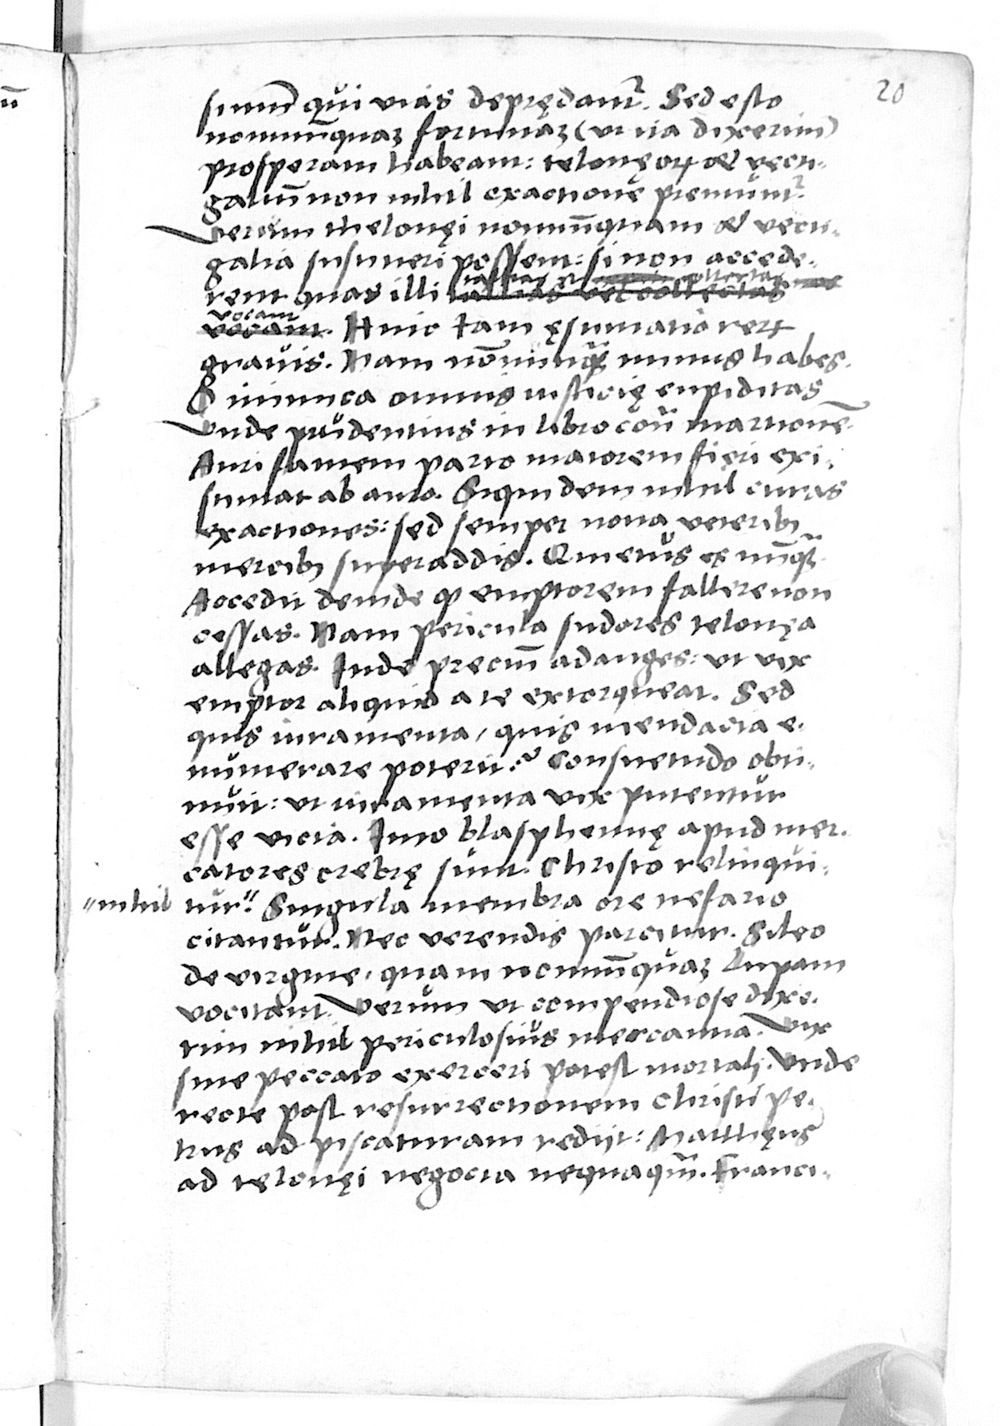 20
sunt qui vias deprędant᷑. Sed esto
nonnunq̄ꝫ fortunaꝫ (ut ita dixerim)
prosperam habeant: telonęoꝝ & vecti-
galiū non nihil exactionē premunt᷑.
Verum theloneị nonnūquam & vecti-
galia sustineri possent: si non accede-
rent quas illi
vocant
vocant. Huic tam ęstimatio reꝝ
gravis. Nam nōnunq̄ꝫ minus habes.
O inimica omnis iusticię cupiditas
Unde prudentius in libro cōtr̄ martionē.
Auri famem parto maiorem fieri exi-
stimat ab auro. Siquidem nihil curas
exactiones: sed semper nova veteribꝫ
mercibꝫ superaddis. Quietus es nūq̄ꝫ.
Accedit deinde ꝙ emptorem fallere non
cessas. Nam pericula sudores telonęa
allegas. Inde preciū adauges: ut vix
emptor aliquid a te extorqueat. Sed
quis iuramenta, quis mendacia e-
numerare poterit? Consuetudo obti-
nuit: ut iuramenta vix putentur
esse vicia. Imo blasphemię apud mer-
catores crebrę sunt. Christo relinqui-
"nihil tur". Singula membra ore nefario
citantur. Nec verendis parcitur. Sileo
de virgine, quam nonnūquaꝫ Lupam
vocitant. Verum ut compendiose dixe-
rim nihil periculosius mercantia. Vix
sine peccato exerceri potest mortali. Unde
recte post resurrectionem Christi pe-
trus ad piscaturam redijt: Matthęus
ad telonęi negocia nequaq̄m. Franci-